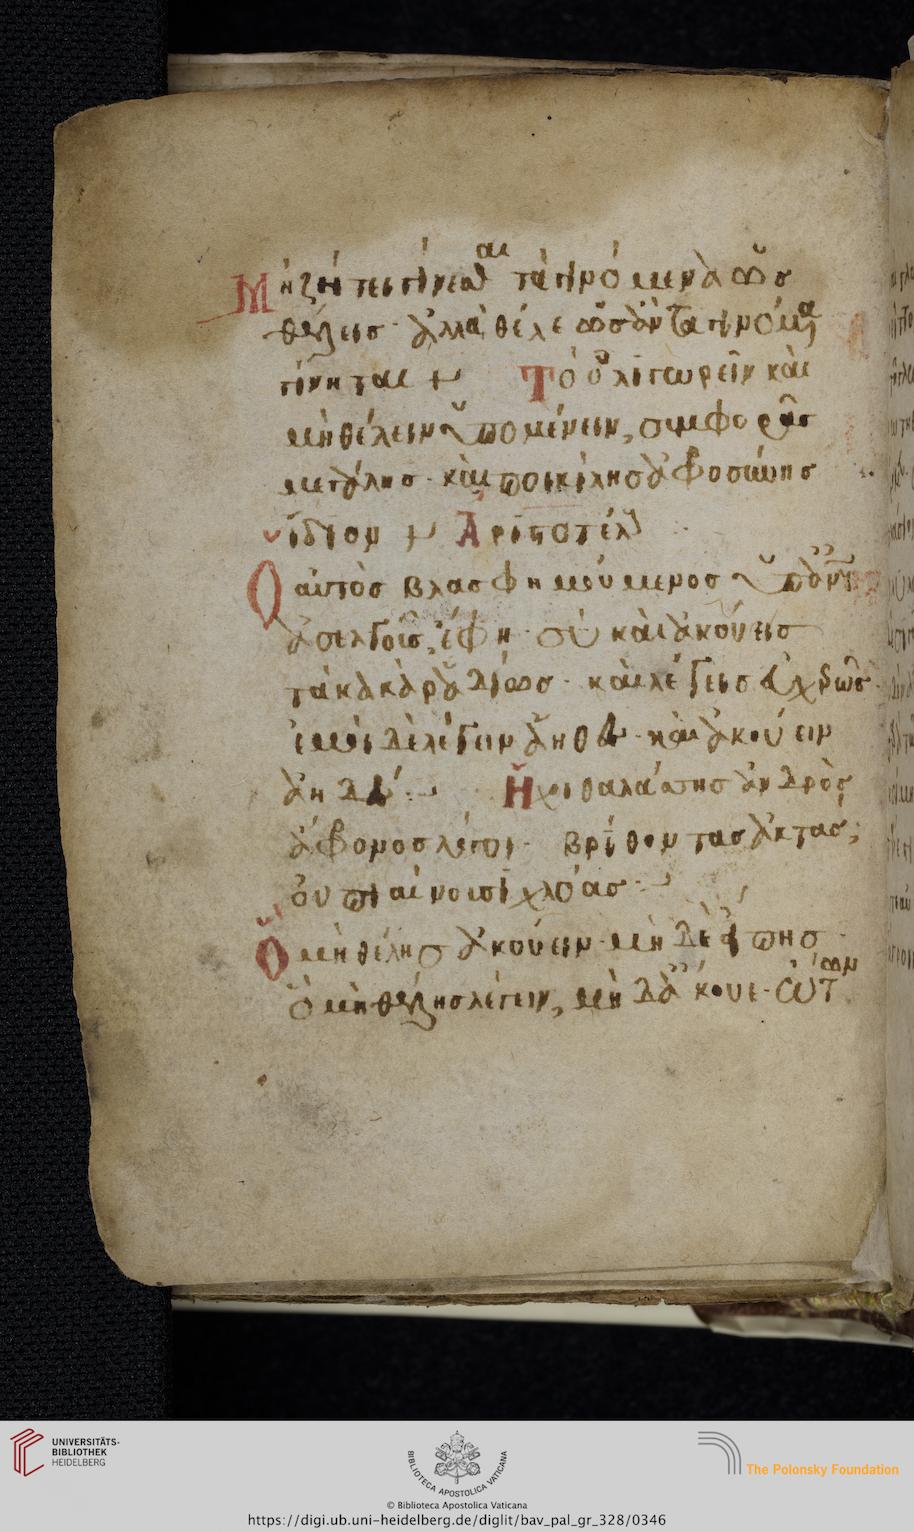 Μὴ ζήτει γίνεσθαι τὰ γινόμενα ὡς
θέλεις· ἀλλὰ θέλε ὡς ἂν τὰ γινόμενα
γίνηται + Τὸ ὀλιγωρεῖν καὶ
μὴ θέλειν ὑπομένειν, συμφορὰς
μεγάλης καὶ ποικίλης ἀφροσύνης
ἴδιον + Ἀριστοτέλ
Ὁ αὐτὸς βλασφημούμενος ὑπό τινος
ἀσελγοῦς, ἔφη· σὺ καὶ ἀκούεις
τὰ κακὰ ῥᾳδίως· καὶ λέγεις
ἐμοὶ δὲ λέγειν ἀηθὲς καὶ ἀκούειν
ἀηδές
Ἤχοι θαλάσσης ἀνδρὸς
ἄφρονος λόγοι· βρίθοντας ἀκτάς,
οὐ πιαίνουσι χλόας
Ὃ μὴ θέλῃς ἀκούειν μὴ δὲ εἴπῃς
ὃ μὴ θέλῃς λέγειν, μὴ δὲ ἄκουε·
UNIVERSITÄTS-
BIBLIOTHEK
HEIDELBERG
BIBLIOTECA APOSTOLICA VATICANA
The Polonsky Foundation
© Biblioteca Apostolica Vaticana
https://digi.ub.uni-heidelberg.de/diglit/bav_pal_gr_328/0346